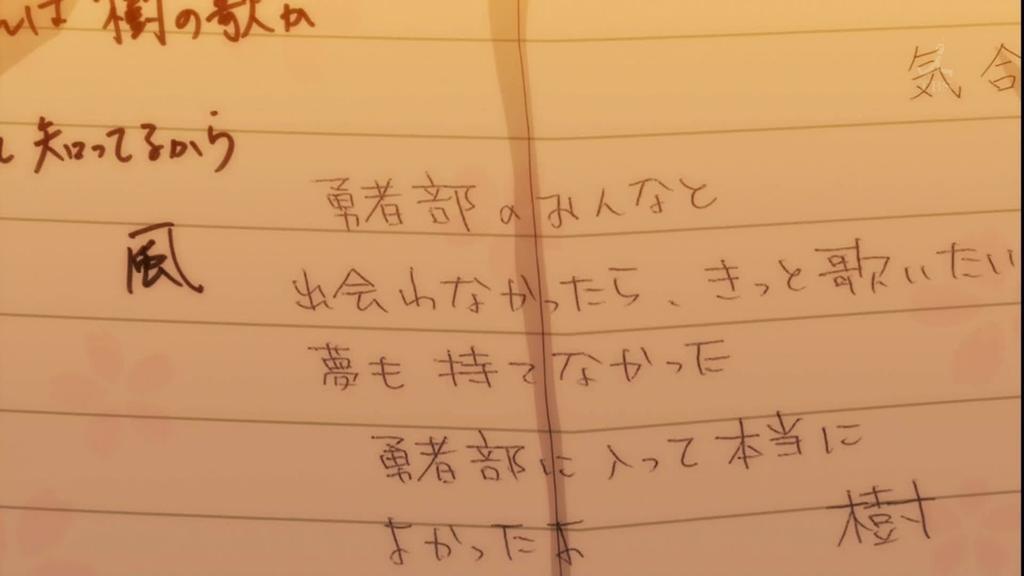 樹の歌か
気合
知ってるから
風
勇者部のみんなと
出会わなかったら、きっと歌いたい
夢も持てなかった
勇者部に入って本当に
よかったよ
樹